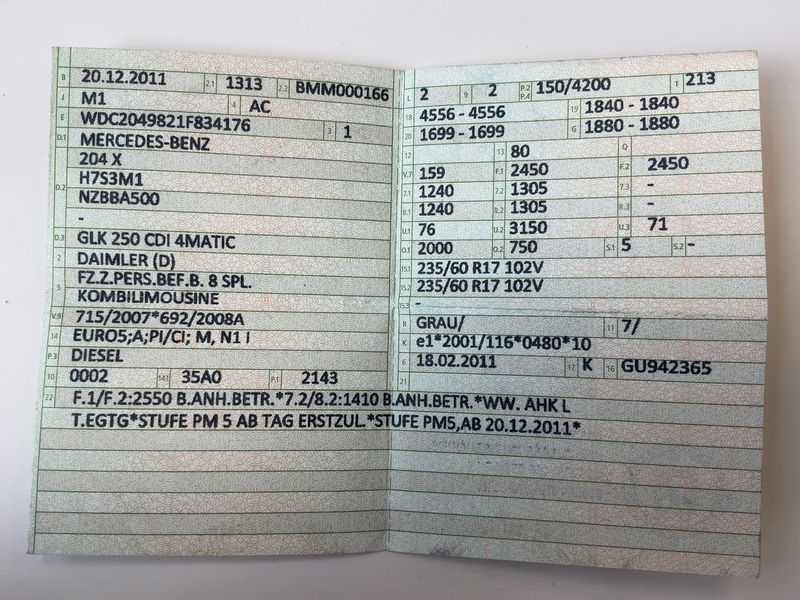 B 20.12.2011 2.1 1313 2.2 BMM000166
J M1 4 AC
E WDC2049821F834176 3 1
D.1 MERCEDES-BENZ
204 X
D.2 H7S3M1
NZBBA500
-
D.3 GLK 250 CDI 4MATIC
2 DAIMLER (D)
5 FZ.Z.PERS.BEF.B. 8 SPL.
KOMBILIMOUSINE
V.9 715/2007*692/2008A
14 EURO5;A;PI/CI; M, N1 I
P.3 DIESEL
10 0002 14.1 35A0 P.1 2143
L 2 9 2 P.2 P.4 150/4200 T 213
18 4556 - 4556 19 1840 - 1840
20 1699 - 1699 G 1880 - 1880
12 13 80 Q
V.7 159 F.1 2450 F.2 2450
7.1 1240 7.2 1305 7.3 -
8.1 1240 8.2 1305 8.3 -
U.1 76 U.2 3150 U.3 71
O.1 2000 O.2 750 S.1 5 S.2 -
15.1 235/60 R17 102V
15.2 235/60 R17 102V
15.3 -
R GRAU/ 11 7/
K e1*2001/116*0480*10
6 18.02.2011 17 K 16 GU942365
21
22 F.1/F.2:2550 B.ANH.BETR.*7.2/8.2:1410 B.ANH.BETR.*WW. AHK L
T.EGTG*STUFE PM 5 AB TAG ERSTZUL.*STUFE PM5,AB 20.12.2011*